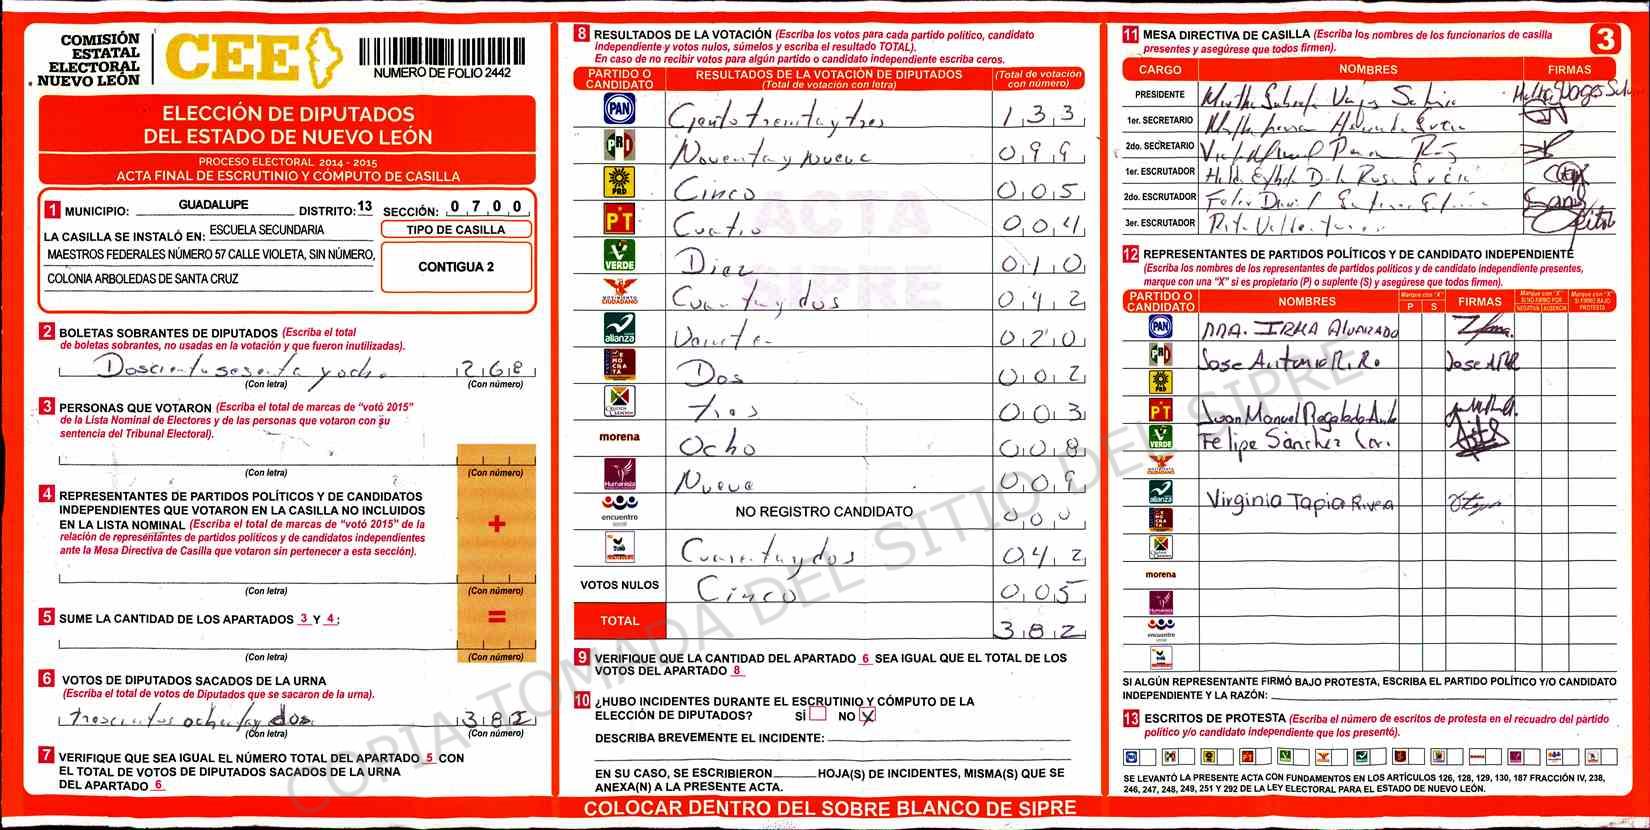 COMISIÓN
ESTATAL
ELECTORAL
NUEVO LEÓN
CEE
NUMERO DE FOLIO 2442
ELECCIÓN DE DIPUTADOS
DEL ESTADO DE NUEVO LEÓN
PROCESO ELECTORAL 2014 - 2015
ACTA FINAL DE ESCRUTINIO Y CÓMPUTO DE CASILLA
1 MUNICIPIO: GUADALUPE DISTRITO: 13 SECCIÓN: 0 7 0 0
LA CASILLA SE INSTALÓ EN: ESCUELA SECUNDARIA
MAESTROS FEDERALES NÚMERO 57 CALLE VIOLETA, SIN NÚMERO,
COLONIA ARBOLEDAS DE SANTA CRUZ
TIPO DE CASILLA
CONTIGUA 2
2 BOLETAS SOBRANTES DE DIPUTADOS (Escriba el total
de boletas sobrantes, no usadas en la votación y que fueron inutilizadas).
Doscientos sesenta y ocho 2 6 8
(Con letra) (Con número)
3 PERSONAS QUE VOTARON (Escriba el total de marcas de "votó 2015"
de la Lista Nominal de Electores y de las personas que votaron con su
sentencia del Tribunal Electoral).
(Con letra) (Con número)
4 REPRESENTANTES DE PARTIDOS POLÍTICOS Y DE CANDIDATOS
INDEPENDIENTES QUE VOTARON EN LA CASILLA NO INCLUIDOS
EN LA LISTA NOMINAL (Escriba el total de marcas de "votó 2015" de la
relación de representantes de partidos políticos y de candidatos independientes
ante la Mesa Directiva de Casilla que votaron sin pertenecer a esta sección).
+
(Con letra) (Con número)
5 SUME LA CANTIDAD DE LOS APARTADOS 3 Y 4:
=
(Con letra) (Con número)
6 VOTOS DE DIPUTADOS SACADOS DE LA URNA
(Escriba el total de votos de Diputados que se sacaron de la urna).
trescientos ochenta y dos 3 8 2
(Con letra) (Con número)
7 VERIFIQUE QUE SEA IGUAL EL NÚMERO TOTAL DEL APARTADO 5 CON
EL TOTAL DE VOTOS DE DIPUTADOS SACADOS DE LA URNA
DEL APARTADO 6
8 RESULTADOS DE LA VOTACIÓN (Escriba los votos para cada partido político, candidato
independiente y votos nulos, súmelos y escriba el resultado TOTAL).
En caso de no recibir votos para algún partido o candidato independiente escriba ceros.
PARTIDO O CANDIDATO RESULTADOS DE LA VOTACIÓN DE DIPUTADOS (Total de votación con letra) (Total de votación con número)
PAN Ciento treinta y tres 1 3 3
PRI Noventa y nueve 0 9 9
PRD Cinco 0 0 5
PT Cuatro 0 0 4
VERDE Diez 0 1 0
MOVIMIENTO CIUDADANO Cuarenta y dos 0 4 2
alianza Veinte 0 2 0
DEMOCRATA Dos 0 0 2
CRUZADA CIUDADANA tres 0 0 3
morena Ocho 0 0 8
Humanista Nueve 0 0 9
encuentro social NO REGISTRO CANDIDATO 0 0 0
Cuarenta y dos 0 4 2
VOTOS NULOS Cinco 0 0 5
TOTAL 3 8 2
ACTA
SIPRE
9 VERIFIQUE QUE LA CANTIDAD DEL APARTADO 6 SEA IGUAL QUE EL TOTAL DE LOS
VOTOS DEL APARTADO 8
10 ¿HUBO INCIDENTES DURANTE EL ESCRUTINIO Y CÓMPUTO DE LA
ELECCIÓN DE DIPUTADOS? SÍ NO X
DESCRIBA BREVEMENTE EL INCIDENTE:
EN SU CASO, SE ESCRIBIERON HOJA(S) DE INCIDENTES, MISMA(S) QUE SE
ANEXA(N) A LA PRESENTE ACTA.
COLOCAR DENTRO DEL SOBRE BLANCO DE SIPRE
COPIA TOMADA DEL SITIO DEL SIPRE
11 MESA DIRECTIVA DE CASILLA (Escriba los nombres de los funcionarios de casilla
presentes y asegúrese que todos firmen).
3
CARGO NOMBRES FIRMAS
PRESIDENTE
1er. SECRETARIO
2do. SECRETARIO
1er. ESCRUTADOR
2do. ESCRUTADOR
3er. ESCRUTADOR
12 REPRESENTANTES DE PARTIDOS POLÍTICOS Y DE CANDIDATO INDEPENDIENTE
(Escriba los nombres de los representantes de partidos políticos y de candidato independiente presentes,
marque con una "X" si es propietario (P) o suplente (S) y asegúrese que todos firmen).
PARTIDO O CANDIDATO NOMBRES Marque con "X" P S FIRMAS Marque con "X" SI NO FIRMÓ POR NEGATIVA AUSENCIA Marque con "X" SI FIRMÓ BAJO PROTESTA
PAN MA. IRMA Alvarado
PRI Jose Antonio R. R.
PRD
PT Juan Manuel Regalado
VERDE Felipe Sánchez
MOVIMIENTO CIUDADANO
alianza Virginia Tapia Rivera
DEMOCRATA
CRUZADA CIUDADANA
morena
Humanista
encuentro social
SI ALGÚN REPRESENTANTE FIRMÓ BAJO PROTESTA, ESCRIBA EL PARTIDO POLÍTICO Y/O CANDIDATO
INDEPENDIENTE Y LA RAZÓN:
13 ESCRITOS DE PROTESTA (Escriba el número de escritos de protesta en el recuadro del partido
político y/o candidato independiente que los presentó).
SE LEVANTÓ LA PRESENTE ACTA CON FUNDAMENTOS EN LOS ARTÍCULOS 126, 128, 129, 130, 187 FRACCIÓN IV, 238,
246, 247, 248, 249, 251 Y 292 DE LA LEY ELECTORAL PARA EL ESTADO DE NUEVO LEÓN.